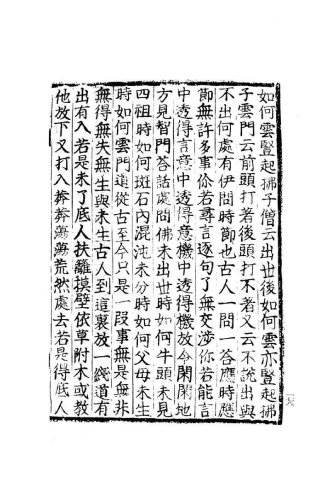 如何雲豎起拂子僧云出世後如何雲亦豎起拂
子雲門云前頭打著後頭打不著又云不說出與
不出何處有伊問時節也古人一問一答應時應
節無許多事你若尋言逐句了無交涉你若能言
中透得言意中透得意機中透得機放令閑閑地
方見智門答話處問佛未出世時如何牛頭未見
四祖時如何斑石內混沌未分時如何父母未生
時如何雲門道從古至今只是一段事無是無非
無得無失無生與未生古人到這裏放一線道有
出有入若是未了底人扶籬摸壁依草附木或教
他放下又打入莽莽蕩蕩荒然處去若是得底人